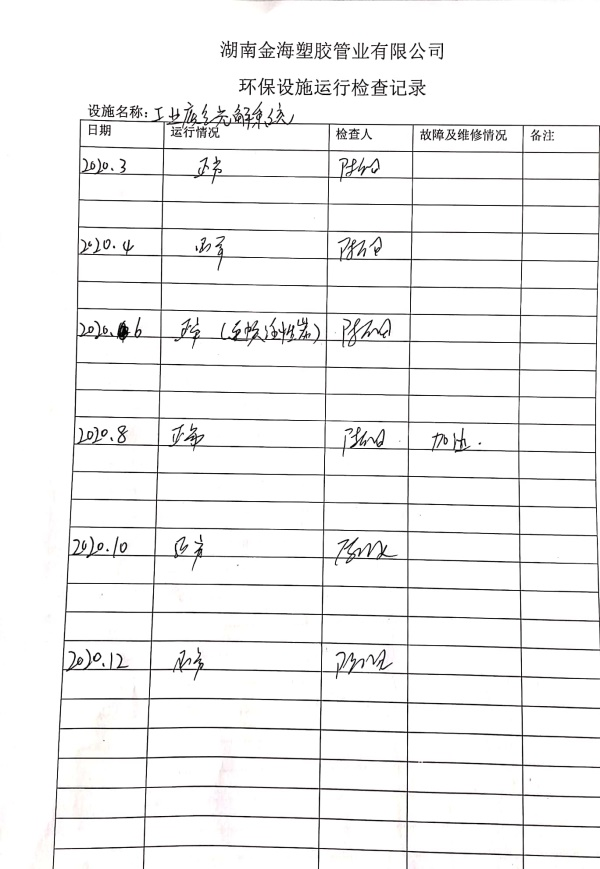 湖南金海塑胶管业有限公司
环保设施运行检查记录
设施名称:工业废气光解系统
日期 运行情况 检查人 故障及维修情况 备注
2020.3 正常
2020.4 正常
2020.6 正常(更换活性炭)
2020.8 正常 加油.
2020.10 正常
2020.12 正常